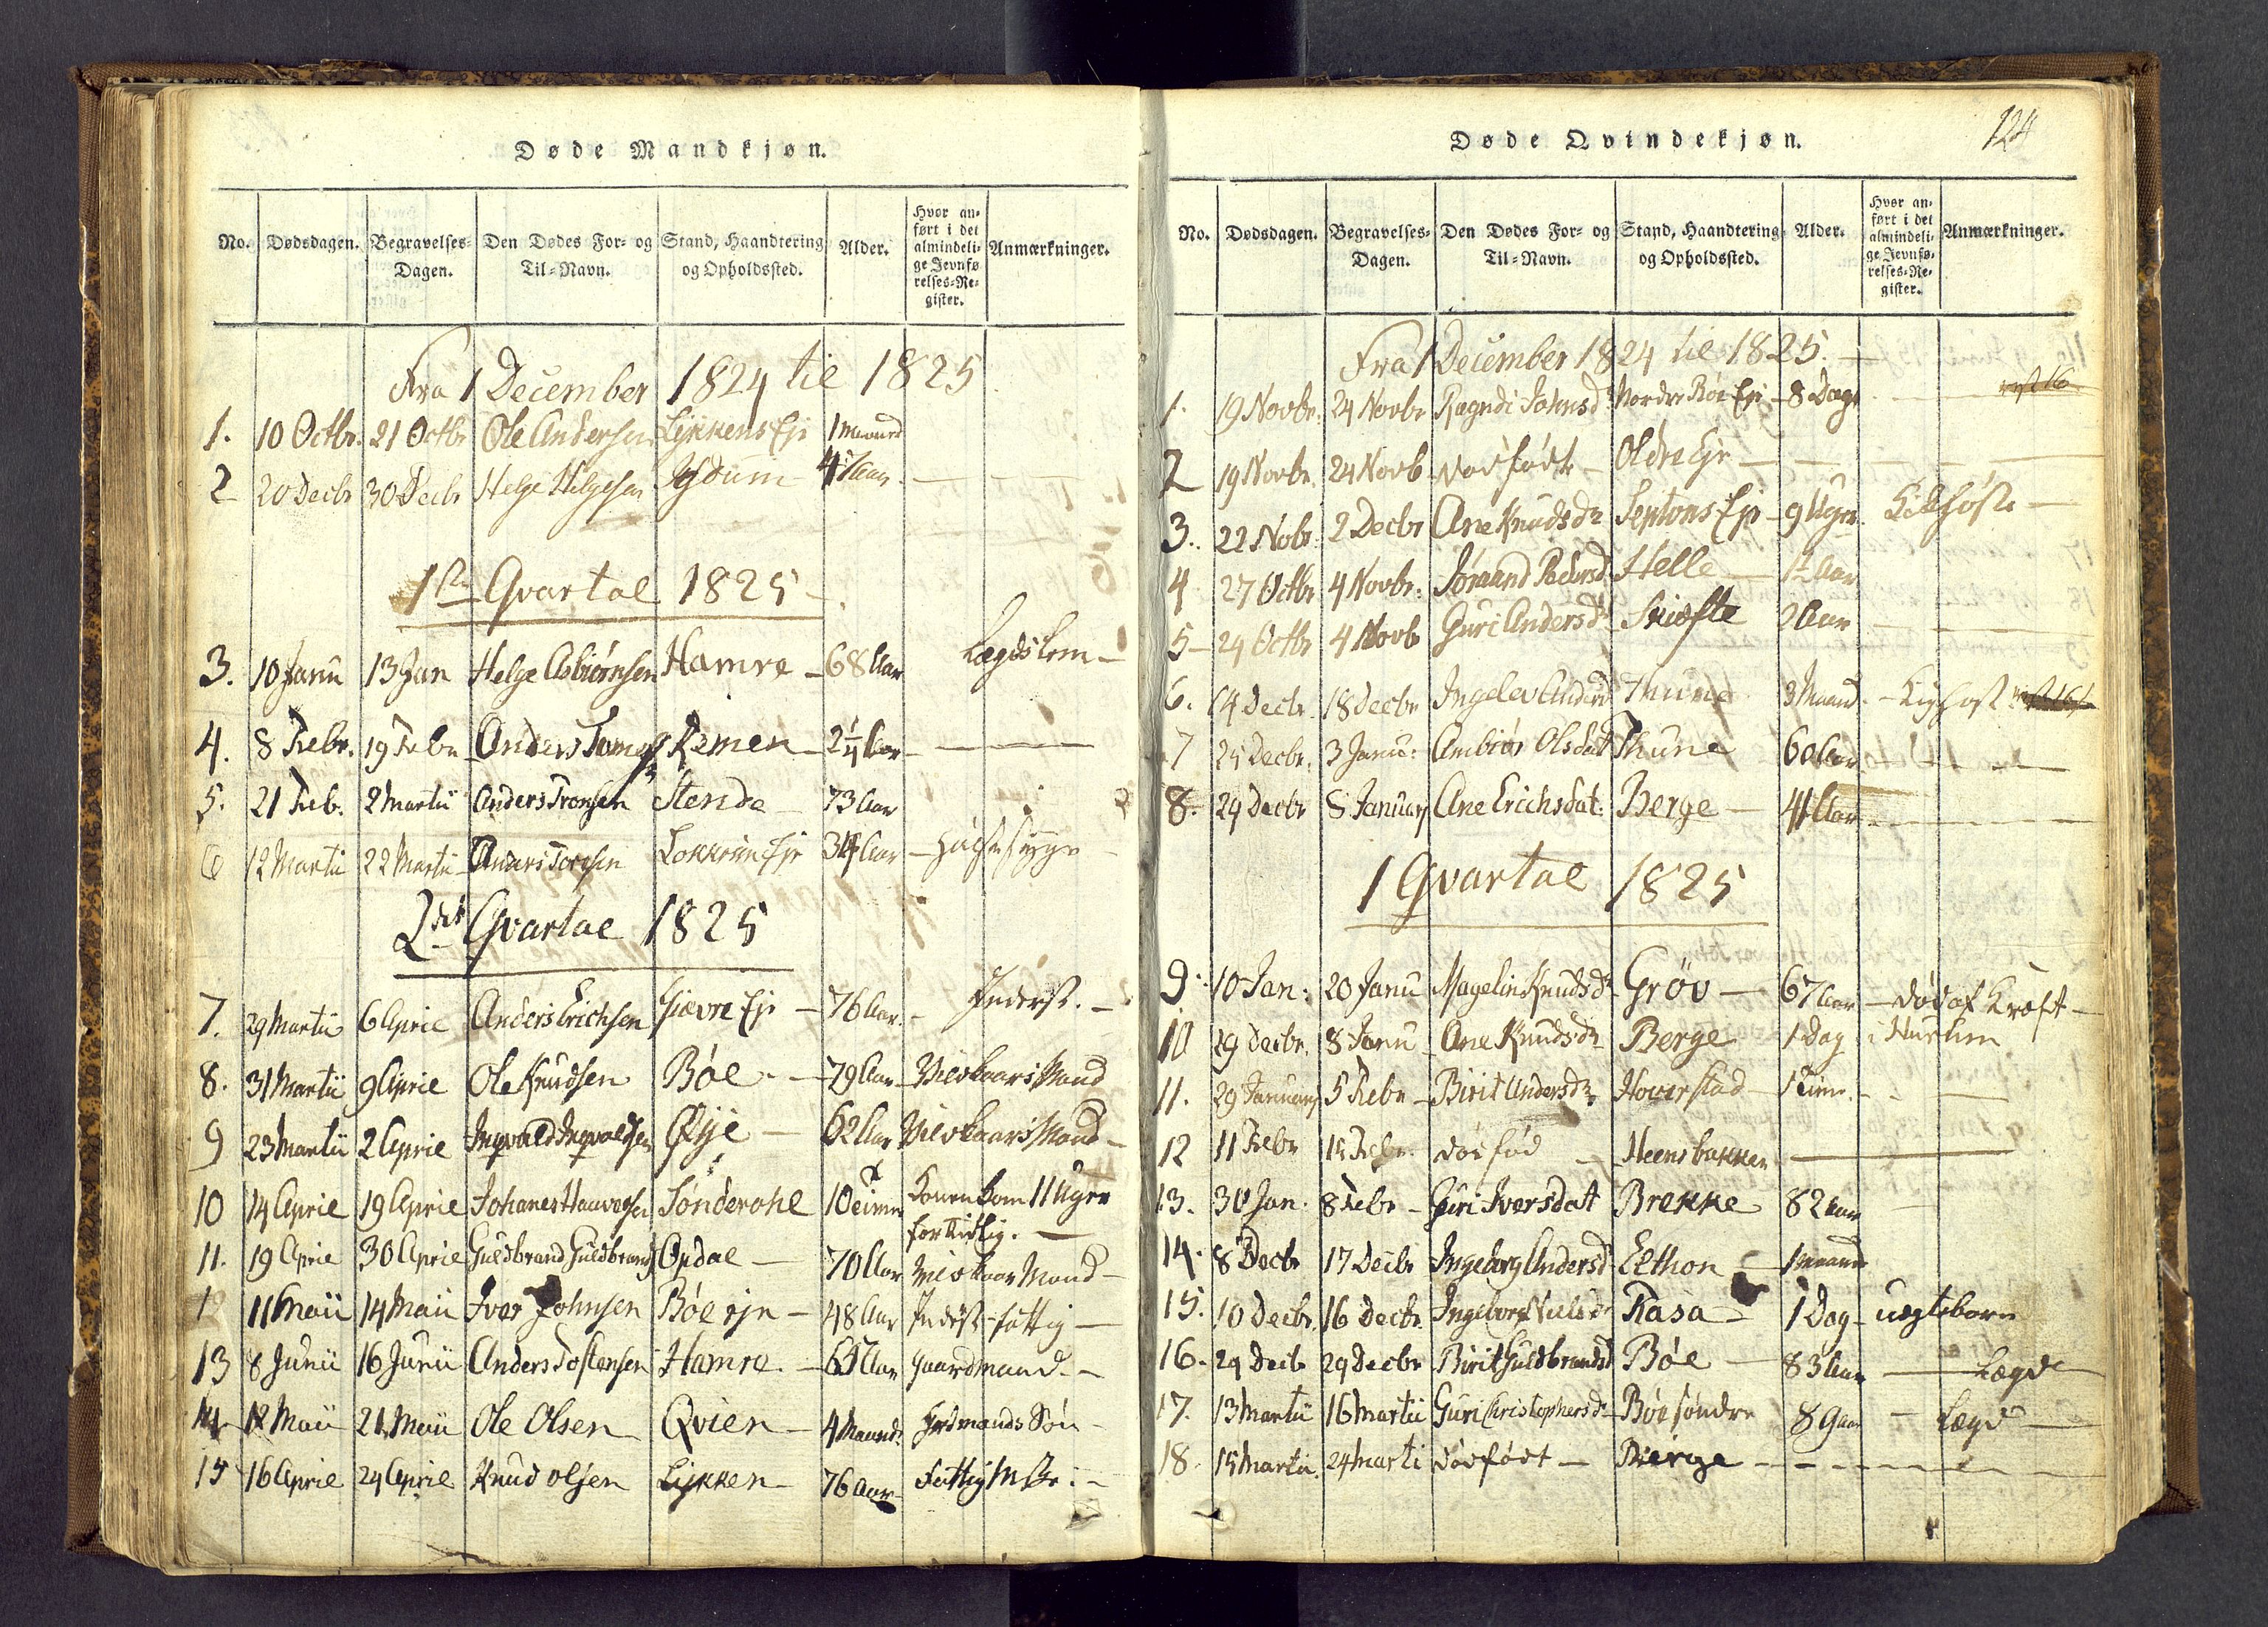 Døde Mandkjøn.
No. Dødsdagen. Begravelses-Dagen. Den Dødes For- og Til-Navn. Stand, Haandtering og Opholdssted. Alder. Hvor anført i det almindelige Jevnførelses-Register. Anmærkninger.
Fra 1 December 1824 til 1825
1. 10 Octbr. 21 Octbr Ole Andersen Lykkens Ejr 1 maaned
2 20 Decbr 30 Decbr Helge Helgesen Ysdum 4 Aar
1ste Qvartal 1825
3. 10 Janu 13 Jan Helge Asbiørnsen Hamre 68 Aar Lægdslem
4. 8 Febr. 19 Febr Anders Remen 2¼ Aar
5. 21 Feb. 2 Martii Anders Tronsen Stende 73 Aar
6 12 Martii 22 Martii Anders Ejr 34 Aar
2det Qvartal 1825
7. 29 Martii 6 April Anders Erichsen Giævre Ejr 76 Aar Inderst.
8. 31 Martii 9 April Ole Knudsen Bøe 79 Aar Vilkaars Mand
9 23 Martii 2 April Ingvald Ingvaldsen Øÿe 62 Aar Vilkaars Mand
10 14 April 19 April Johanes Sønderohl 10 Konen kom 11 Uger
for tidlig.
11. 19 April 30 April Guldbrand Guldbrands Opdal 70 Aar Vilkaar Mand
1 11 Maii 14 Maii Iver Johnsen Bøe ejr 48 Aar Inderst fattig
13 8 Junii 16 Junii Anders Tostensen Hamre 65 Aar Gaardmand
14 12 Maii 21 Maii Ole Olsen Qvien 4 Maand. Huusmands Søn
15 16 April 24 April Knud Olsen Lykken 76 Aar Fattig
124
Døde Qvindekjøn.
No. Dødsdagen. Begravelses-Dagen. Den Dødes For- og Til-Navn. Stand, Haandtering og Opholdssted. Alder. Hvor anført i det almindelige Jevnførelses-Register. Anmærkninger.
Fra 1 December 1824 til 1825.
1. 19 Novbr. 24 Novbr Ragndi Johnsd. Nordre Røe Ejr 8 Dage
2 19 Novbr. 24 Novb dødfødt Oldre Ejr
3. 22 Nobr. 2 Decbr Ane Knudsdr Ejr 9 Uger Kikhoste
4 27 Octbr 4 Novbr. Jøraand Pedersd Helle 1½ Aar
5 24 Octbr 4 Novb Guri Andersdr Skiefte 2 Aar
6. 14 Decbr. 18 Decbr Ingelev Andersd Thune 3 Maand.
7 25 Decbr. 3 Janu: Ambiør Olsdat Thune 60 Aar
8. 29 Decbr 8 Januar Ane Erichsdat. Berge 41 Aar
1 Qvartal 1825
9. 10 Jan: 20 Janu Magelin Knudsdr Grøv 67 Aar død af Kræft
10 29 Decbr. 8 Janu Ane Knudsdr Berge 1 Dag
11. 29 Januar 5 Febr Birit Andersdr Hoverstad
12 11 Febr 15 Febr. dødfød Heensbakken
13. 30 Jan. 8 Febr Guri Iversdat Brekke 82 Aar
14. 8 Decbr 17 Decbr Ingeborg Andersd Elthon 1 maaned
15. 10 Decbr. 16 Decbr. Ingeborg Nielsdr Rasa 1 Dag uegteborn
16. 29 Decb 29 Decbr Birit Guldbrandsd Bøe 83 Aar Lægd
17. 13 Martii 16 Martii Guri Christophersdr Bøe søndre 89 Aar Lægd
18. 15 Martii. 24 Marti dødfødt Berge